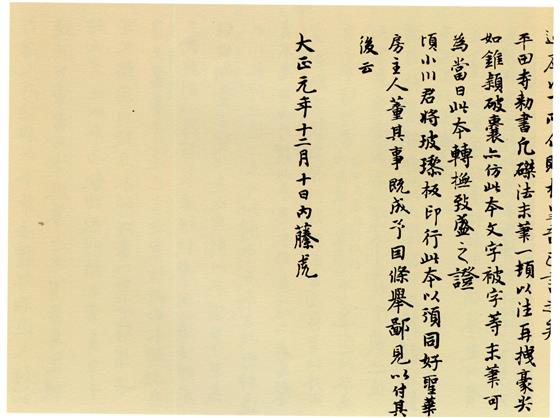 平田寺勅書凡磔法末筆一頓以注再拽豪尖
如錐頴破嚢亦仿此本文字被字等末筆可
為當日此本轉橅致盛之證
頃小川君將玻瓈板印行此本以頒同好聖華
房主人董其事既成予因條舉鄙見以付其
後云
大正元年十二月十日内藤虎